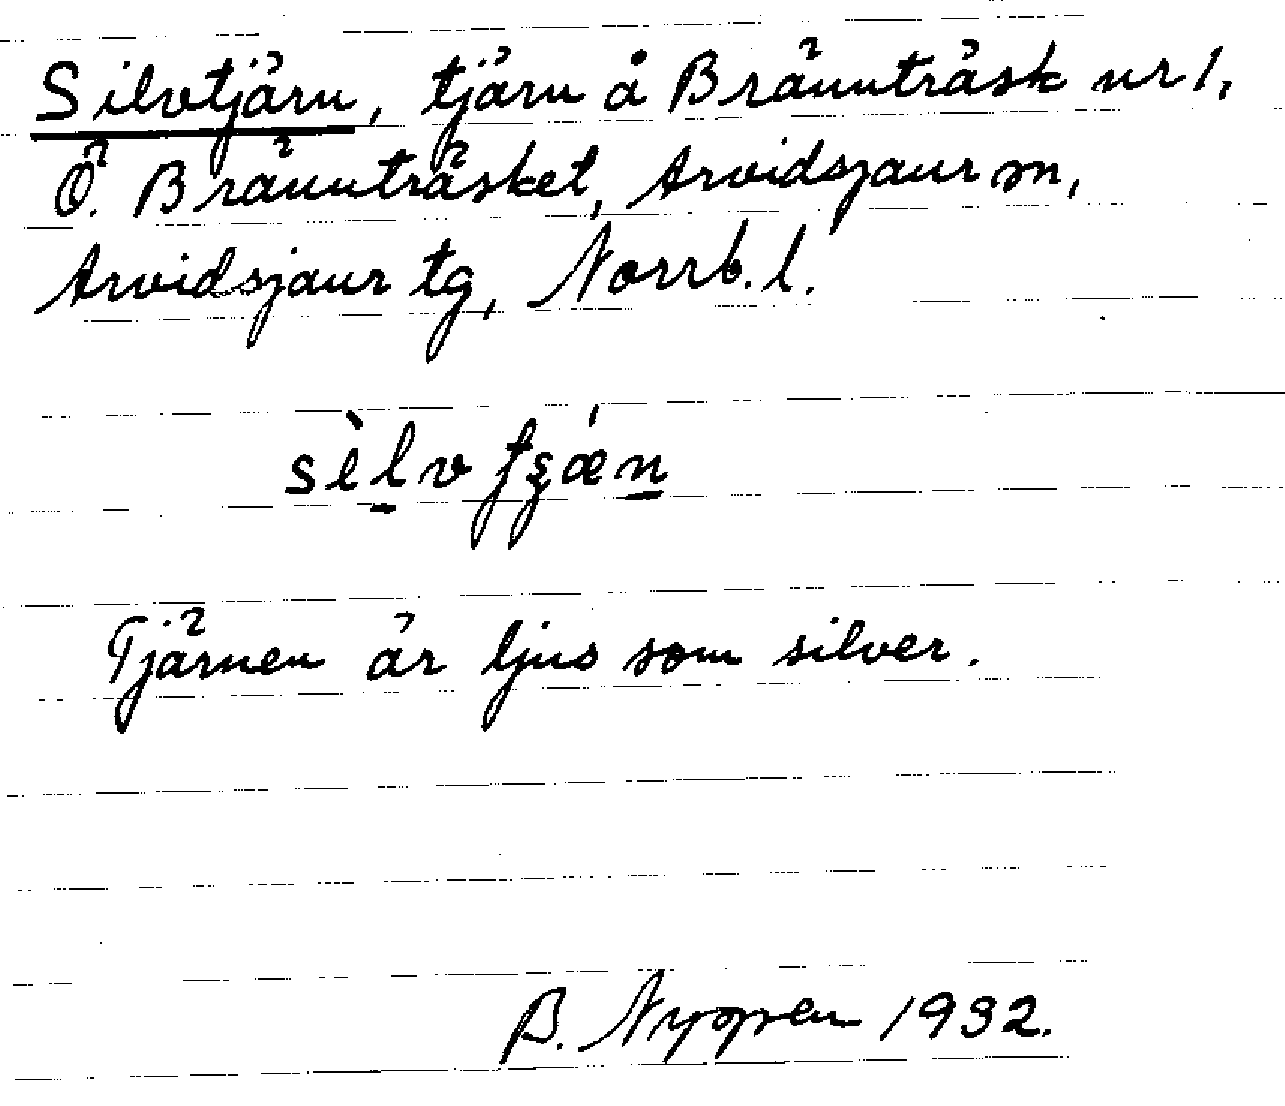 Silvtjärn, tjärn å Brännträsk nr 1,
Ö. Brännträsket, Arvidsjaur sn,
Arvidsjaur tg, Norrb. l.
Tjärnen är ljus som silver.
B. 1932.